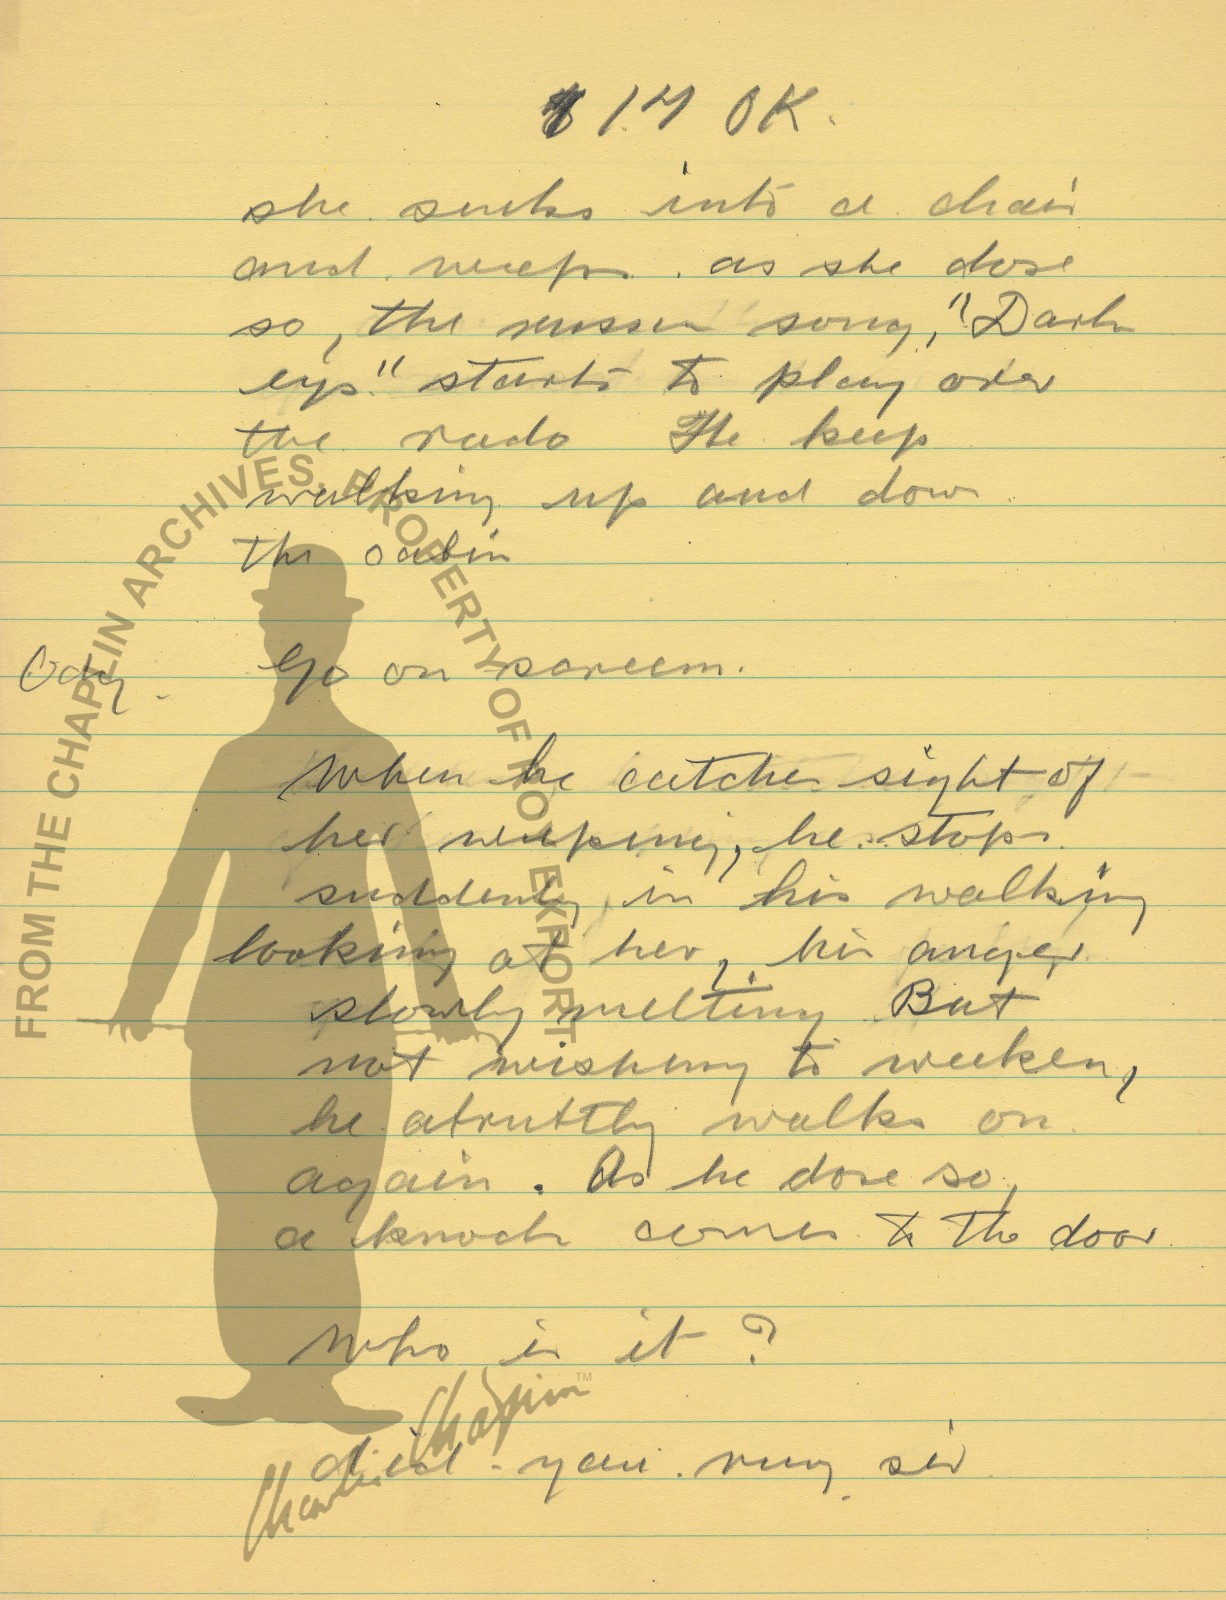 17 OK.
she sinks into a chair
and weeps. as she dose
so, the russen song, "Dark
eys" starts to play over
the rado He keep
walking up and down
the cabin
Ody. Go on scream.
When he catches sight of
her weeping, he stops
suddenly, in his walking
looking at her, his anger
slowly melting But
not wishing to weeken,
he abruttly walks on
again. As he dose so,
a knock comes to the door
Who is it?
did you ring sir
FROM THE CHAPLIN ARCHIVES. PROPERTY OF ROY EXPORT
Charlie Chaplin TM